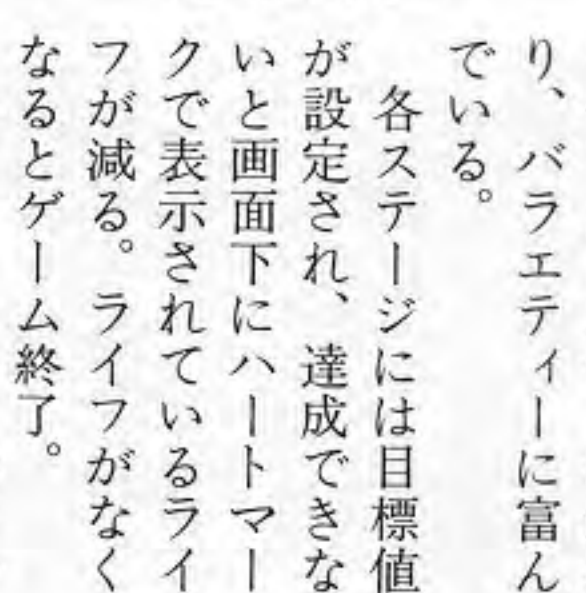 り、バラエティーに富ん
でいる。
　各ステージには目標値
が設定され、達成できな
いと画面下にハートマー
クで表示されているライ
フが減る。ライフがなく
なるとゲーム終了。